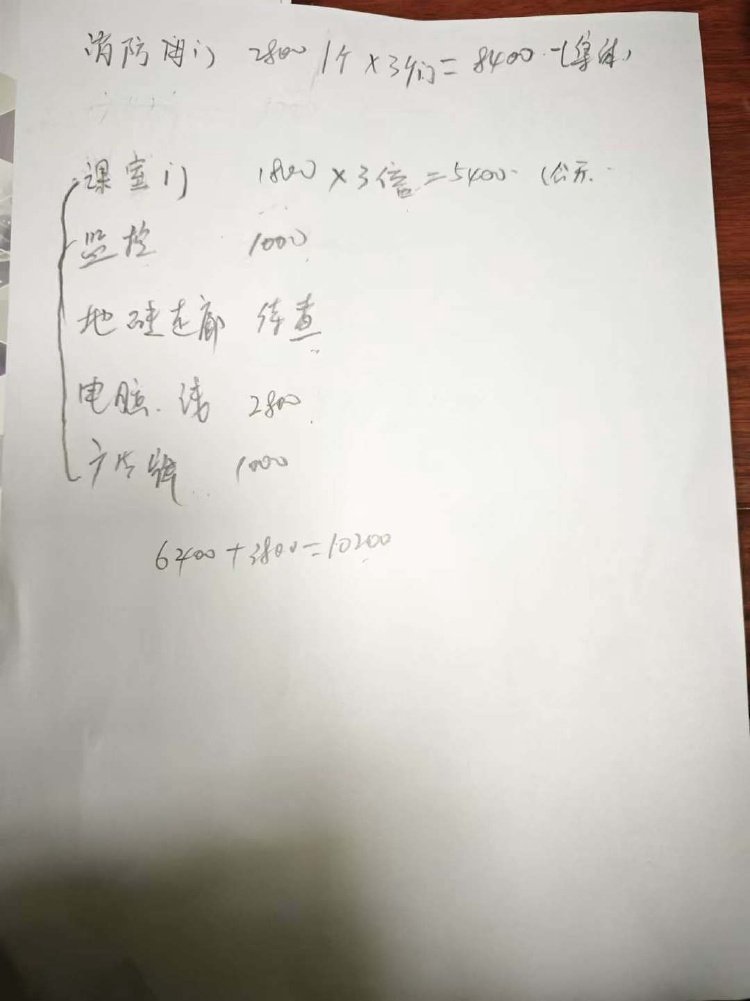 消防门 2800 1个×3个门=8400 (集体)
课室门 1800×3倍=5400 (公示
监控 1000
地砖走廊 待查
电脑.线 2800
广告牌 1000
6400+3800=10200